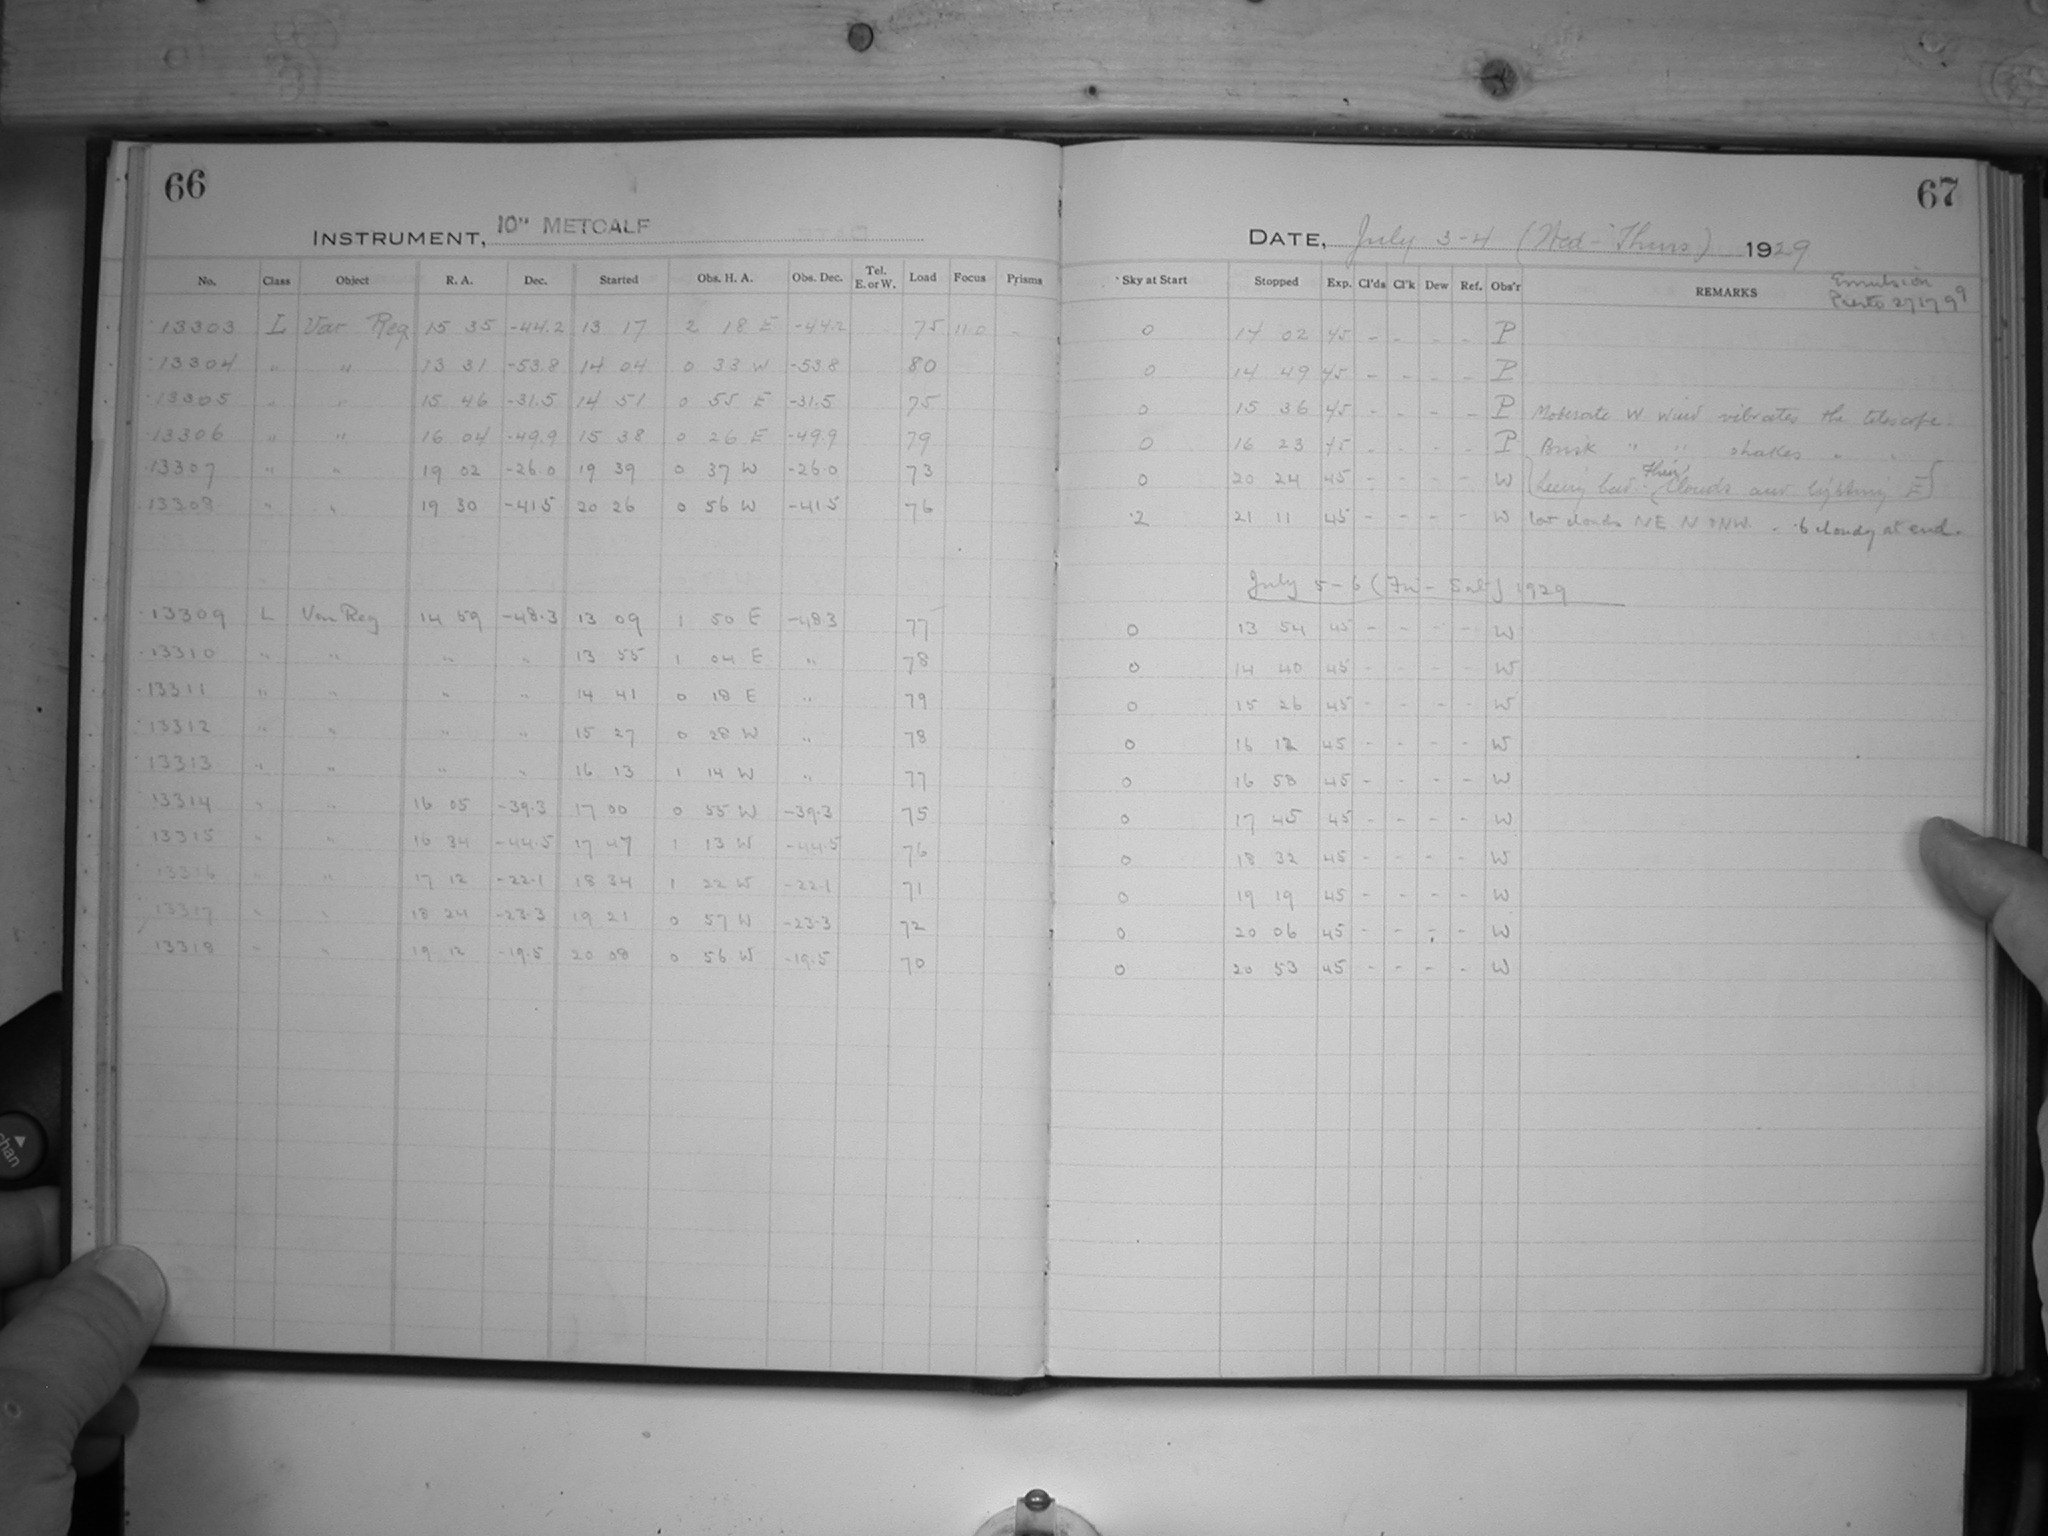 66
INSTRUMENT, 10" METCALF
No. Class Object R. A. Dec. Started Obs. H. A. Obs. Dec. Tel. E. or W. Load Focus Prisms
13303 L Var Reg 15 35 -44.2 13 17 2 18 E -44.2 75 11.0 -
13304 " " 13 31 -53.8 14 04 0 33 W -53.8 80
13305 " " 15 46 -31.5 14 51 0 55 E -31.5 75
13306 " " 16 04 -49.9 15 38 0 26 E -49.9 79
13307 " " 19 02 -26.0 19 39 0 37 W -26.0 73
13308 " " 19 30 -41.5 20 26 0 56 W -41.5 76
13309 L Var Reg 14 59 -48.3 13 09 1 50 E -48.3 77
13310 " " " " 13 55 1 04 E " 78
13311 " " " " 14 41 0 18 E " 79
13312 " " " " 15 27 0 28 W " 78
13313 " " " " 16 13 1 14 W " 77
13314 " " 16 05 -39.3 17 00 0 55 W -39.3 75
13315 " " 16 34 -44.5 17 47 1 13 W -44.5 76
13316 " " 17 12 -22.1 18 34 1 22 W -22.1 71
13317 " " 18 24 -23.3 19 21 0 57 W -23.3 72
13318 " " 19 12 -19.5 20 08 0 56 W -19.5 70
67
DATE, July 3-4 (Wed-Thurs) 1929
Sky at Start Stopped Exp. Cl'ds Cl'k Dew Ref. Obs'r REMARKS Emulsion
0 14 02 45 - - - - P
0 14 49 45 - - - - P
0 15 36 45 - - - - P Moderate W wind vibrates the telescope.
0 16 23 45 - - - - P Brisk " " shakes " "
0 20 24 45 - - - - W Thin clouds and lightning E
.2 21 11 45 - - - - W low clouds NE N + NW. - .6 cloudy at end.
July 5-6 (Fri - Sat) 1929
0 13 54 45 - - - - W
0 14 40 45 - - - - W
0 15 26 45 - - - - W
0 16 12 45 - - - - W
0 16 58 45 - - - - W
0 17 45 45 - - - - W
0 18 32 45 - - - - W
0 19 19 45 - - - - W
0 20 06 45 - - - - W
0 20 53 45 - - - - W
chan